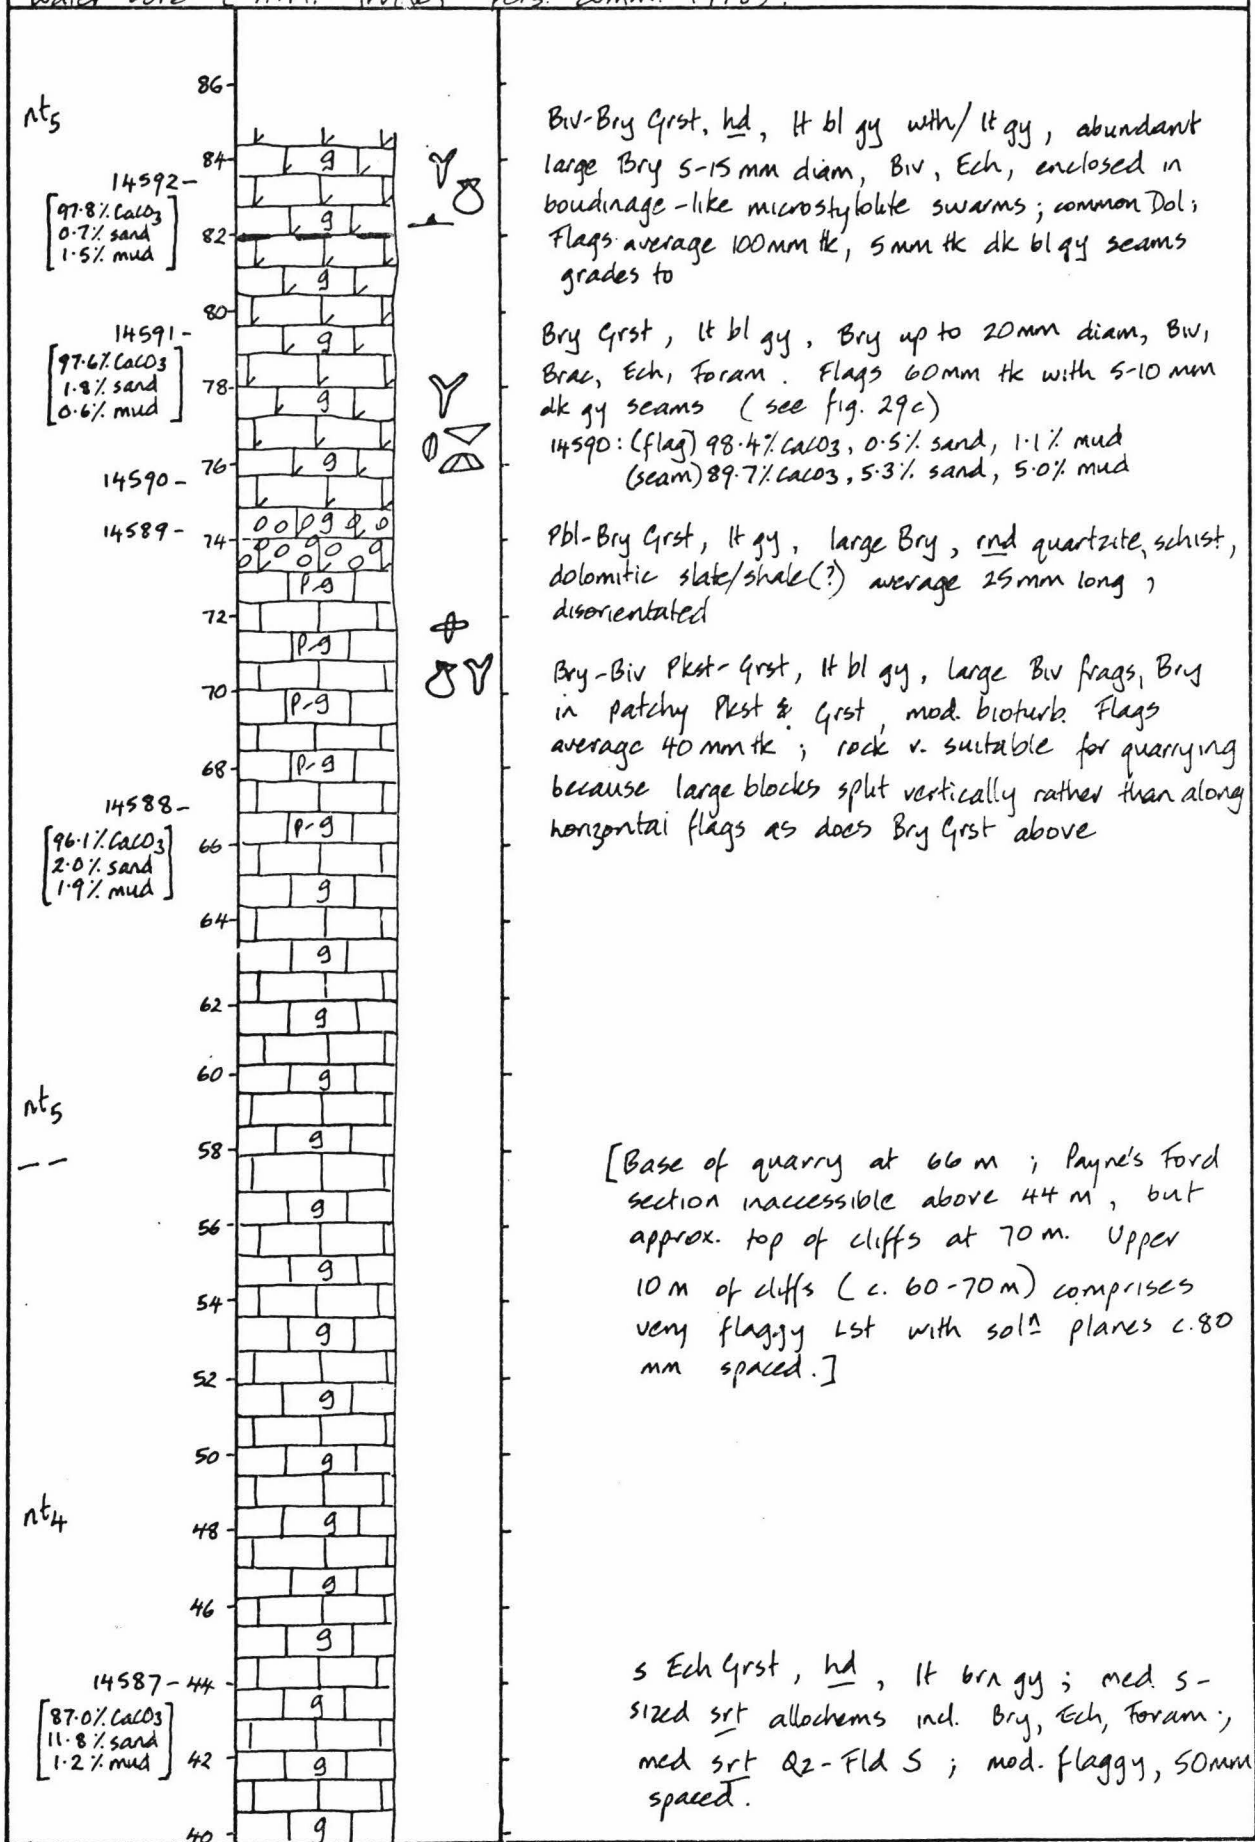 nt5
86-
84-
14592-
[97.8% CaCO3
0.7% sand
1.5% mud]
82
80-
14591-
[97.6% CaCO3
1.8% sand
0.6% mud]
78-
76-
14590-
14589-
74-
72-
70-
68-
14588-
[96.1% CaCO3
2.0% sand
1.9% mud]
66-
64-
62-
60-
nt5
58-
56-
54-
52-
50-
nt4
48-
46-
14587-44-
[87.0% CaCO3
11.8% sand
1.2% mud]
42
40
g
g
g
g
g
g
p g
g g
p-g
p-g
p-g
p-g
p-g
g
g
g
g
g
g
g
g
g
g
g
g
g
g
g
g
Biv-Bry Grst, hd, lt bl gy with/ lt gy, abundant
large Bry 5-15 mm diam, Biv, Ech, enclosed in
boudinage-like microstylolite swarms; common Dol;
Flags average 100mm tk, 5mm tk dk bl gy seams
grades to
Bry Grst, lt bl gy, Bry up to 20mm diam, Biv,
Brac, Ech, Foram. Flags 60mm tk with 5-10 mm
dk gy seams (see fig. 29c)
14590: (flag) 98.4% CaCO3, 0.5% sand, 1.1% mud
(seam) 89.7% CaCO3, 5.3% sand, 5.0% mud
Pbl-Bry Grst, lt gy, large Bry, rnd quartzite, schist,
dolomitic slate/shale(?) average 25mm long,
disorientated
Bry-Biv Pkst-Grst, lt bl gy, large Biv frags, Bry
in patchy Pkst & Grst, mod. bioturb. Flags
average 40 mm tk; rock v. suitable for quarrying
because large blocks split vertically rather than along
horizontal flags as does Bry Grst above
[Base of quarry at 66 m; Payne's Ford
section inaccessible above 44 m, but
approx. top of cliffs at 70 m. Upper
10 m of cliffs (c. 60-70 m) comprises
very flaggy Lst with soln planes c.80
mm spaced.]
s Ech Grst, hd, lt brn gy; med. s-
sized srt allochems incl. Bry, Ech, Foram.,
med srt Qz-Fld S; mod. flaggy, 50mm
spaced.